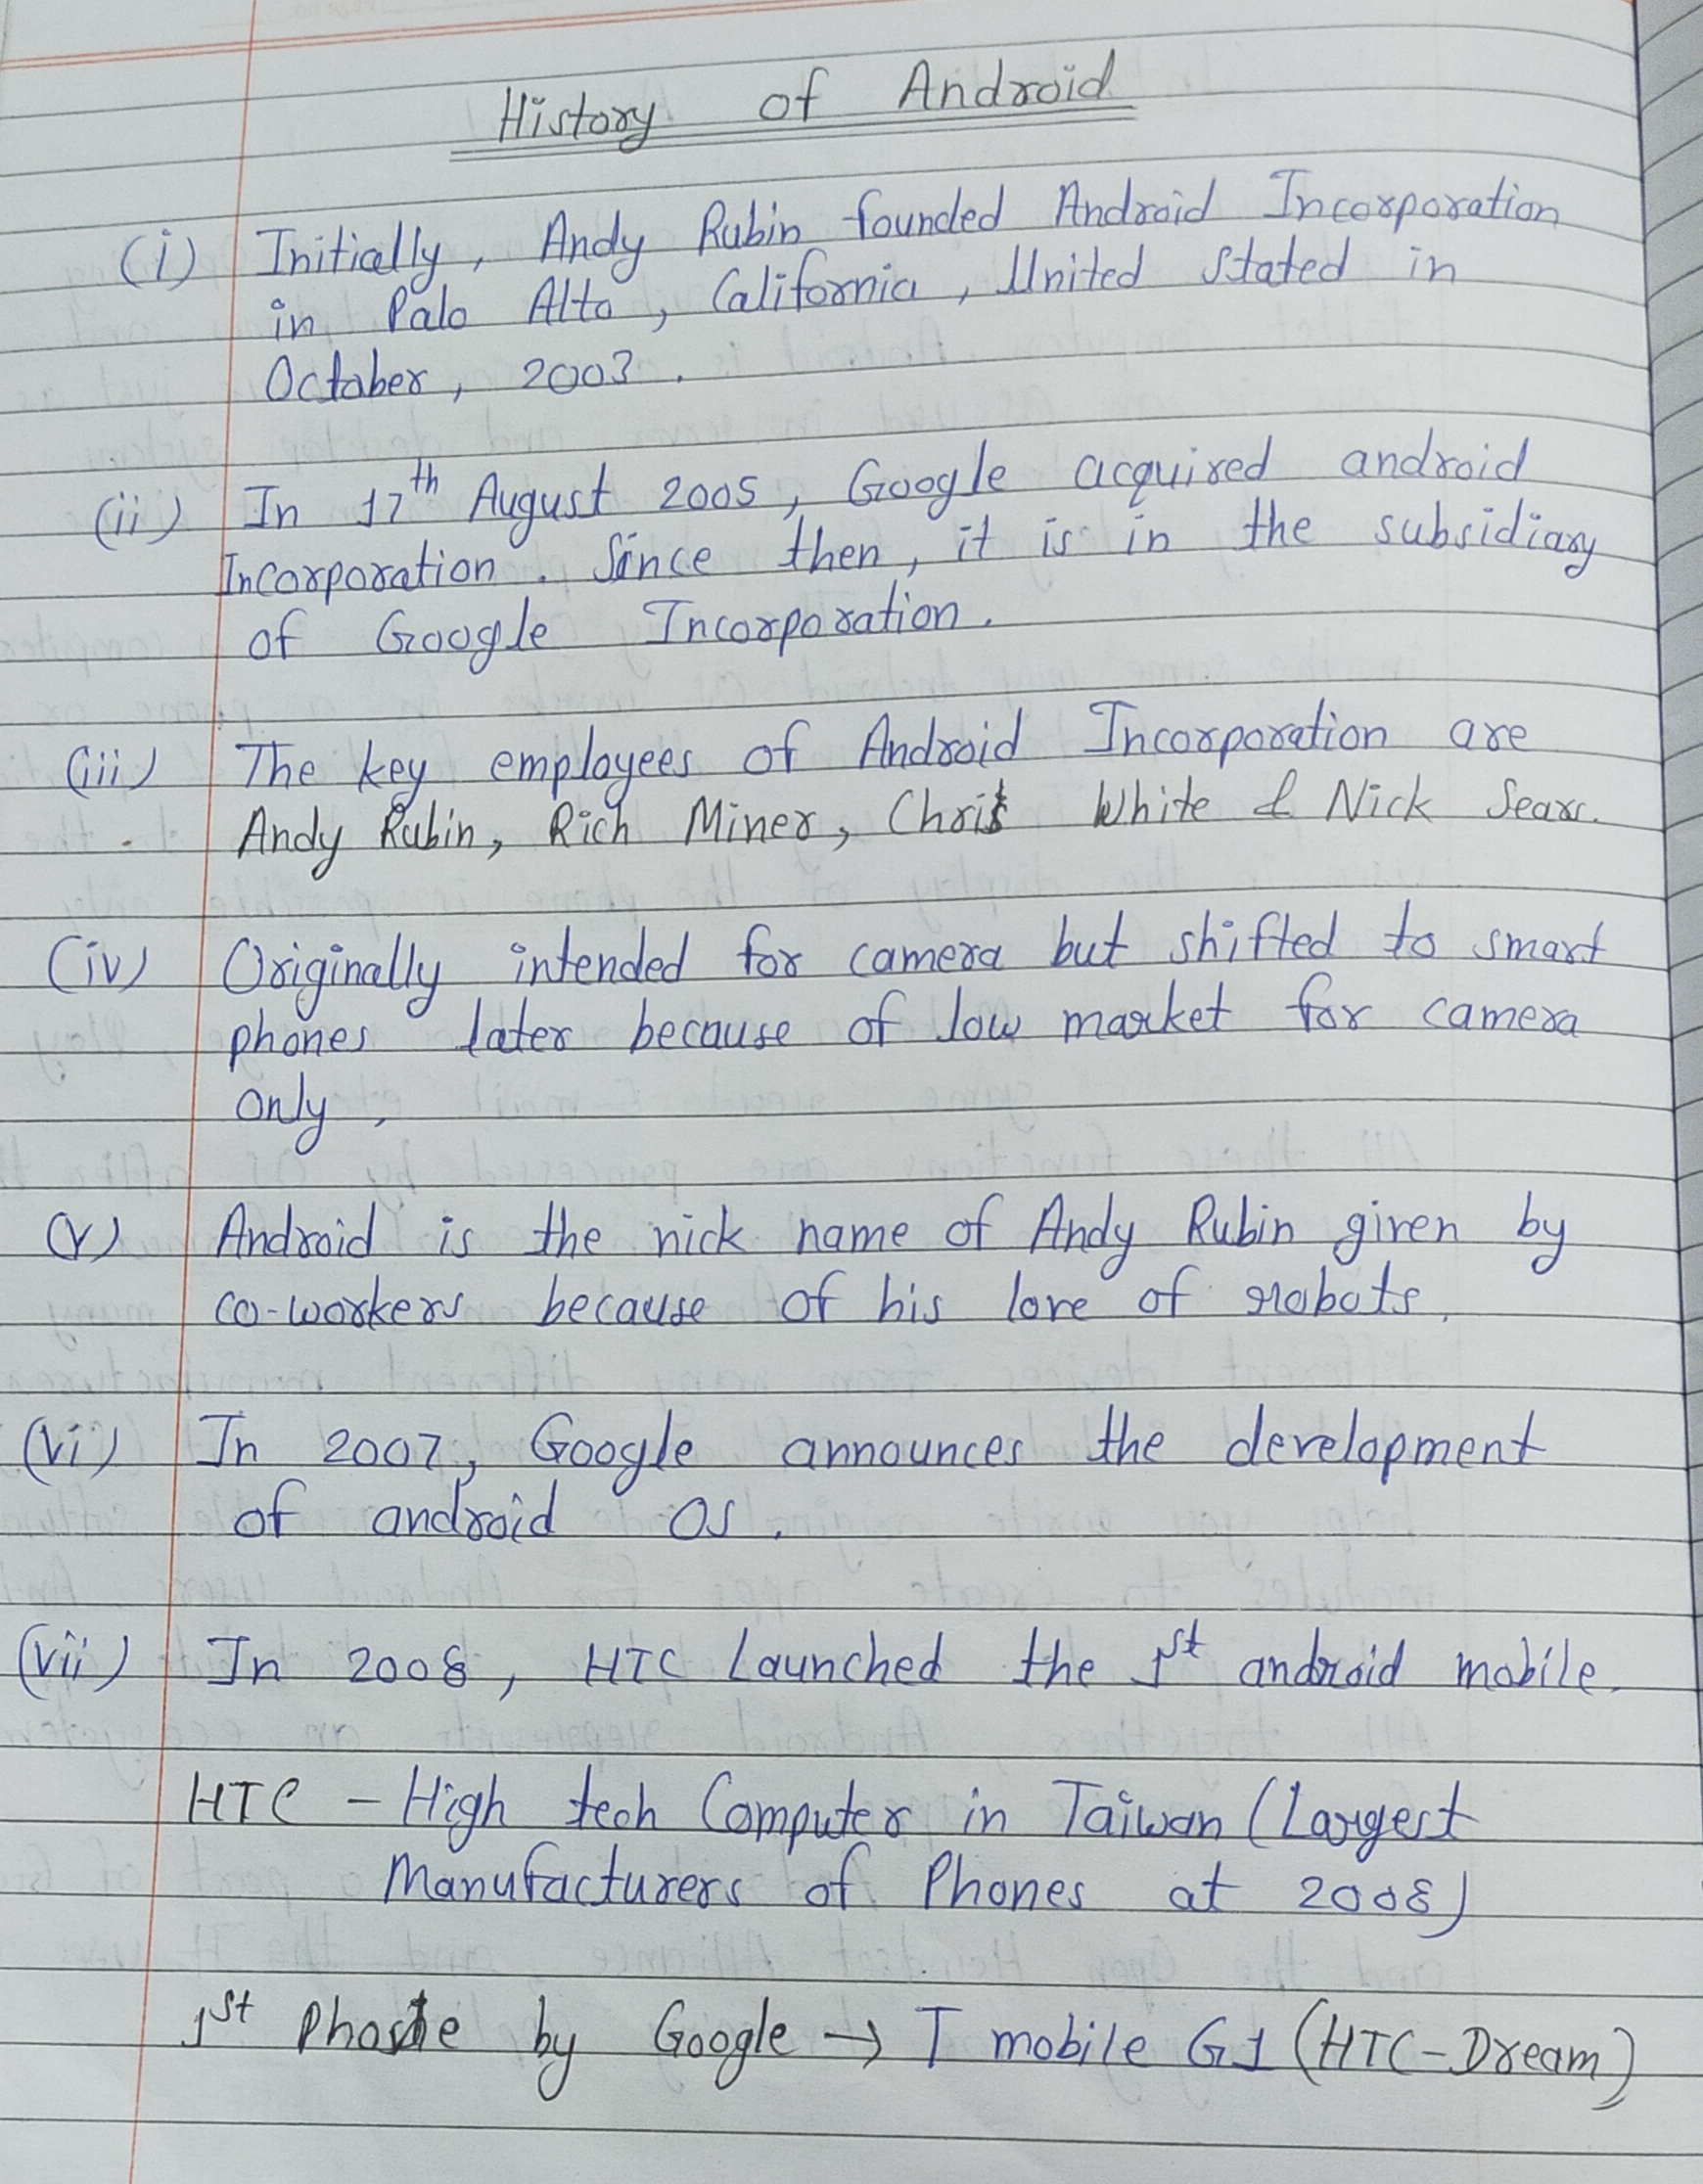 History of Android
(i) Initially, Andy Rubin founded Android Incorporation
in Palo Alto, California, United Stated in
October, 2003.
(ii) In 17th August 2005, Google acquired android
Incorporation. Since then, it is in the subsidiary
of Google Incorporation.
(iii) The key employees of Android Incorporation are
Andy Rubin, Rich Miner, Chris White & Nick Sears.
(iv) Originally intended for camera but shifted to smart
phones later because of low market for camera
only.
(v) Android is the nick name of Andy Rubin given by
co-workers because of his love of robots.
(vi) In 2007, Google announces the development
of android OS.
(vii) In 2008, HTC Launched the 1st android mobile.
HTC - High tech Computer in Taiwan (Largest
Manufacturers of Phones at 2008)
1st Phone by Google → T mobile G1 (HTC-Dream)